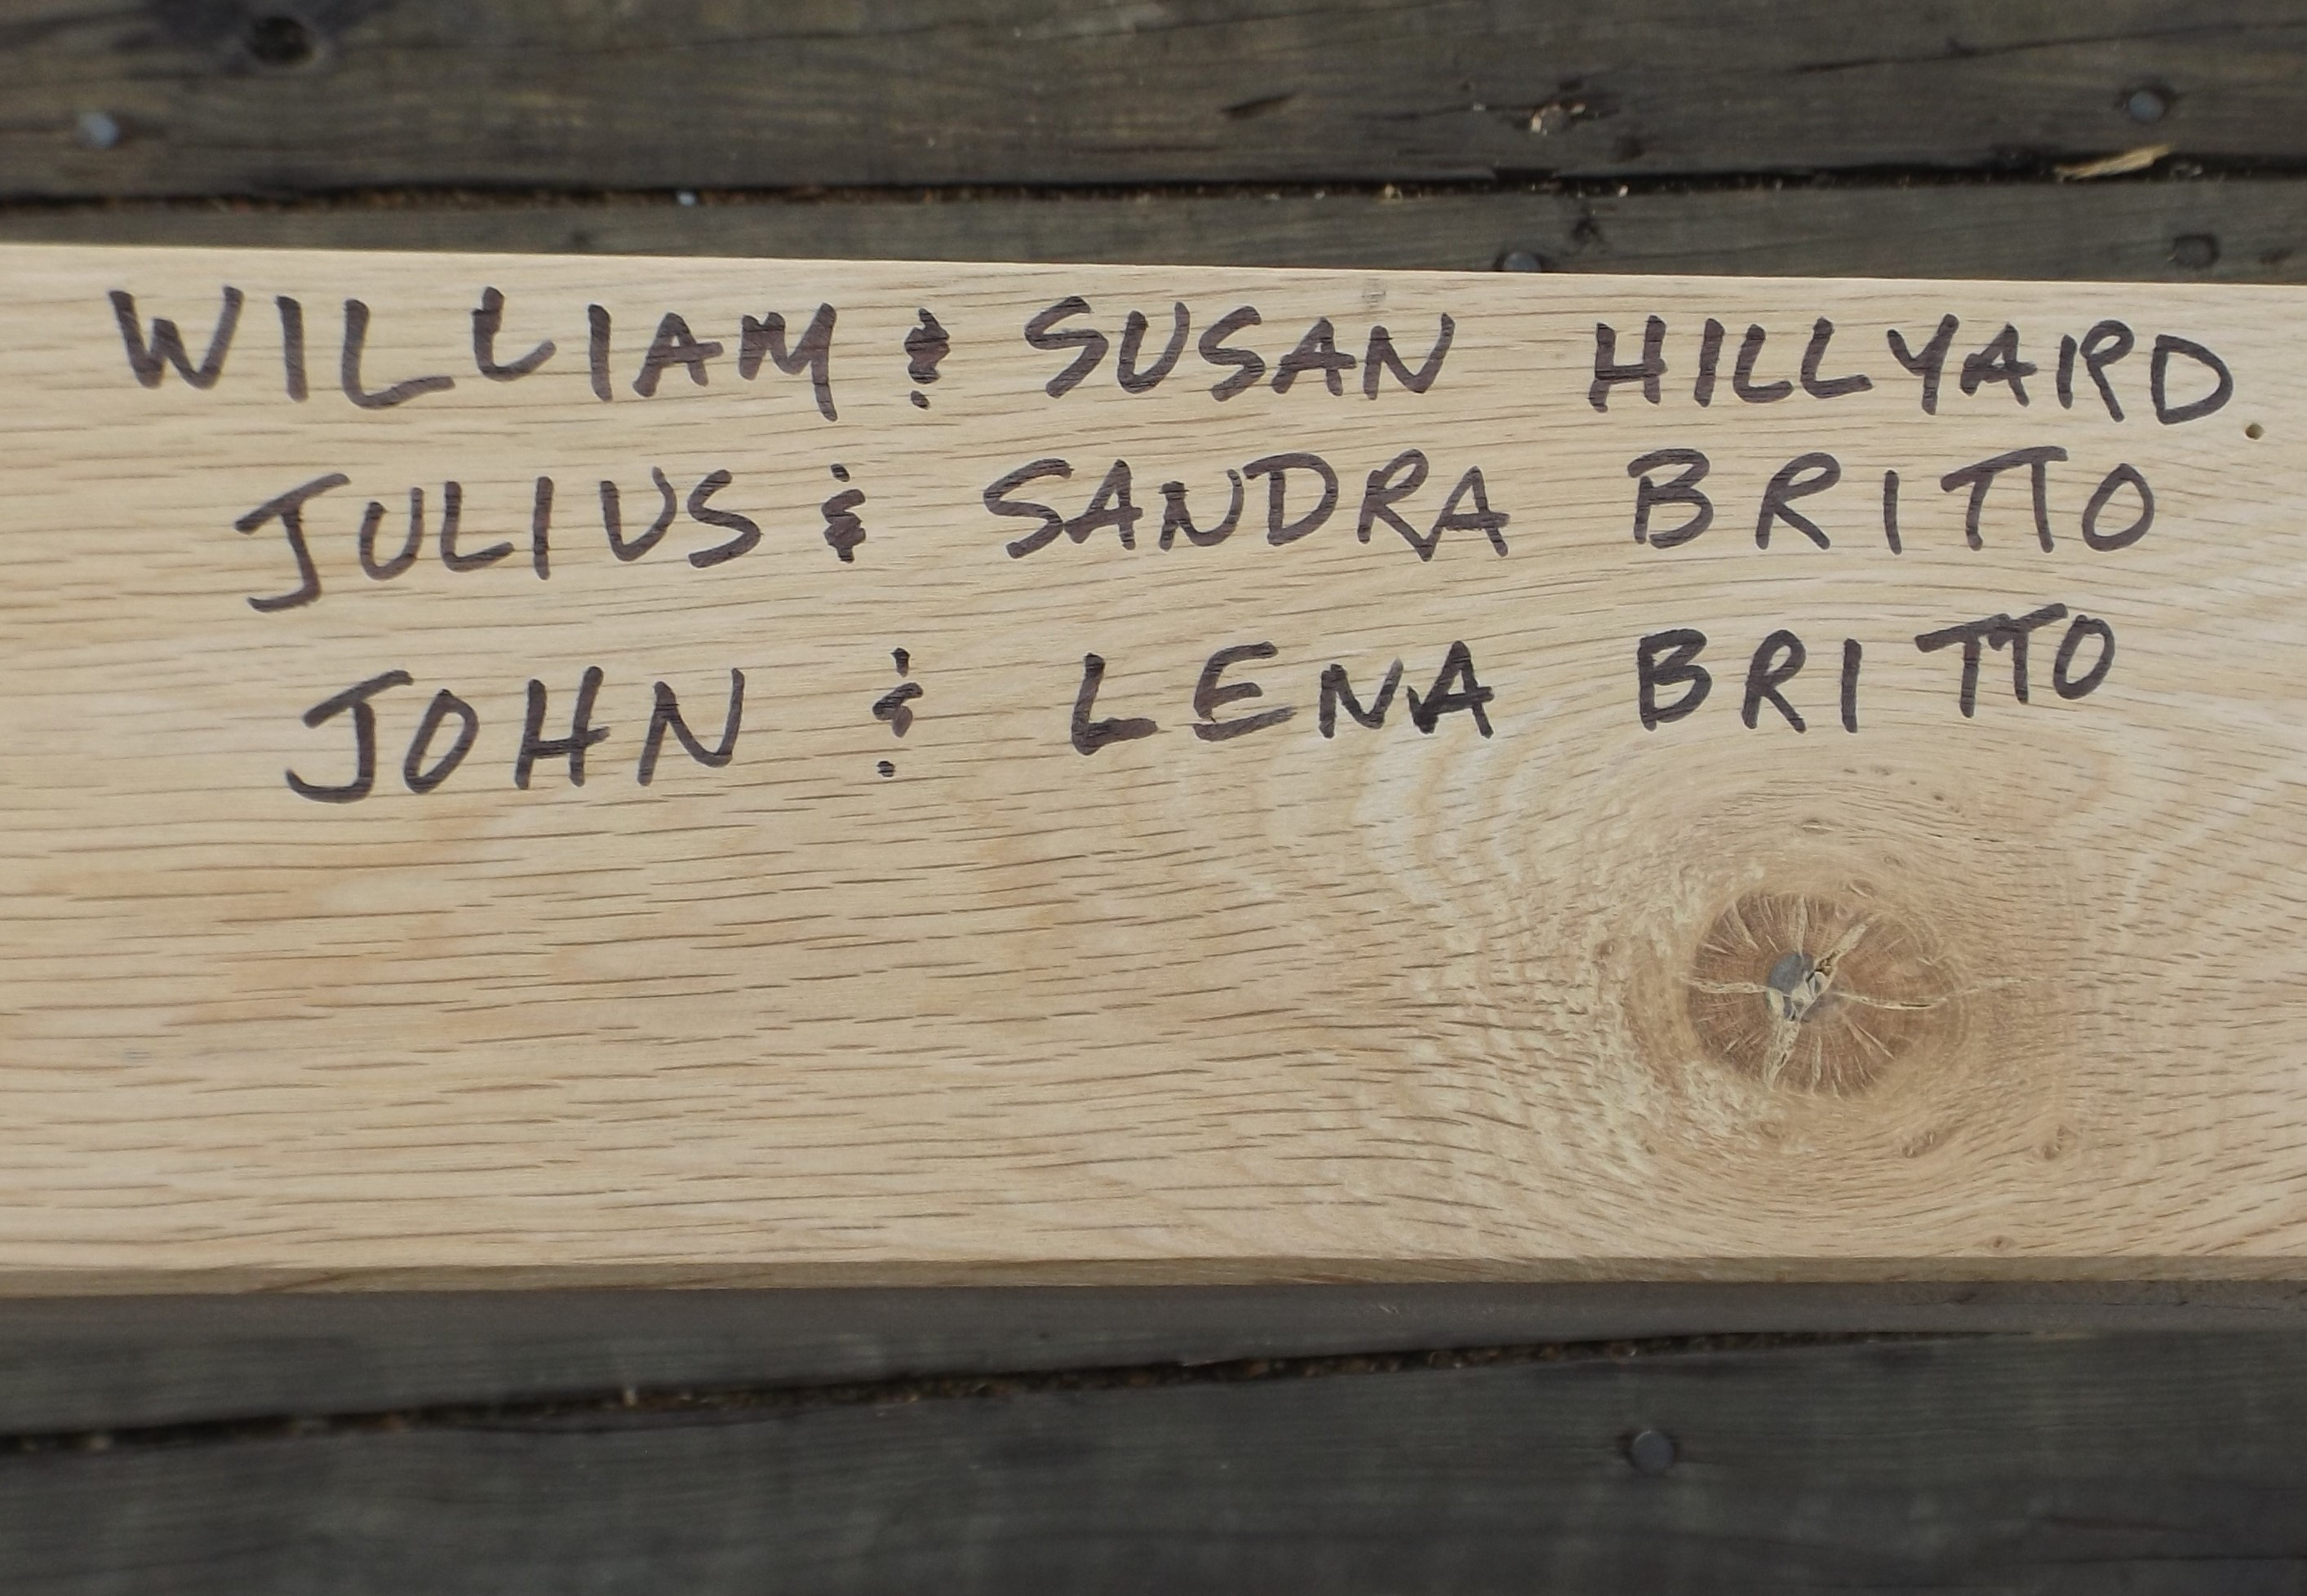 WILLIAM & SUSAN HILLYARD
JULIUS & SANDRA BRITTO
JOHN & LENA BRITTO